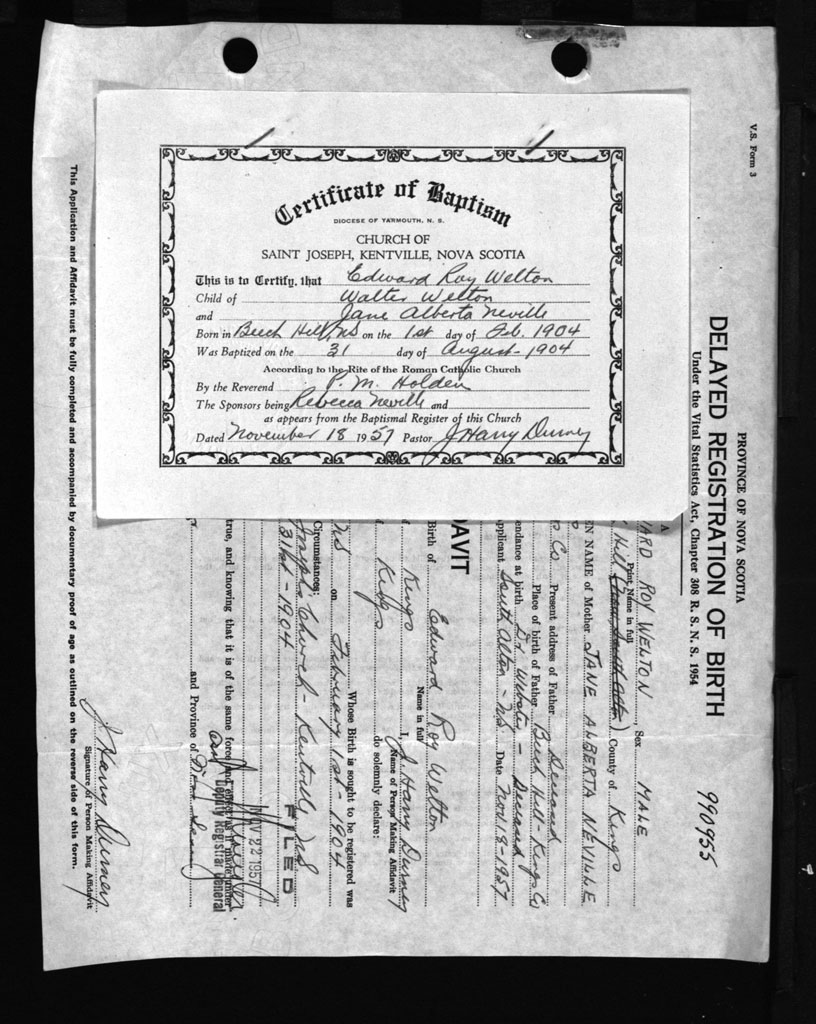 Certificate of Baptism
DIOCESE OF YARMOUTH, N. S.
CHURCH OF
SAINT JOSEPH, KENTVILLE, NOVA SCOTIA
This is to Certify, that Edward Roy Welton
Child of Walter Welton
and Jane Alberta Neville
Born in Beech Hill, NS on the 1st day of Feb. 1904
Was Baptized on the 31 day of August - 1904
According to the Rite of the Roman Catholic Church
By the Reverend P. M. Holden
The Sponsors being Rebecca Neville and
as appears from the Baptismal Register of this Church
Dated November 18 1957 Pastor J Harry Durney
V.S. Form 3
PROVINCE OF NOVA SCOTIA
DELAYED REGISTRATION OF BIRTH
Under the Vital Statistics Act, Chapter 308 R. S. N. S. 1954
990955
ARD ROY WELTON Sex MALE
Print Name in full
Hill County of Kings
EN NAME of Mother JANE ALBERTA NEVILLE
Co Present address of Father Deceased
Place of birth of Father Beech Hill - Kings Co
endance at birth Dr Webster - Deceased
pplicant South Alton - NS Date Nov 18 - 1957
AVIT
Birth of Edward Roy Welton
Name in full
Kings I, J Harry Durney
Name of Person Making Affidavit
Kings do solemnly declare:
Whose Birth is sought to be registered was
NS on February 1st - 1904
Circumstances:
Josephs Church - Kentville, NS
31st - 1904
FILED
NOV 22 1957
Deputy Registrar General
true, and knowing that it is of the same force and effect as if made under
and Province of
J Harry Durney
Signature of Person Making Affidavit
This Application and Affidavit must be fully completed and accompanied by documentary proof of age as outlined on the reverse side of this form.